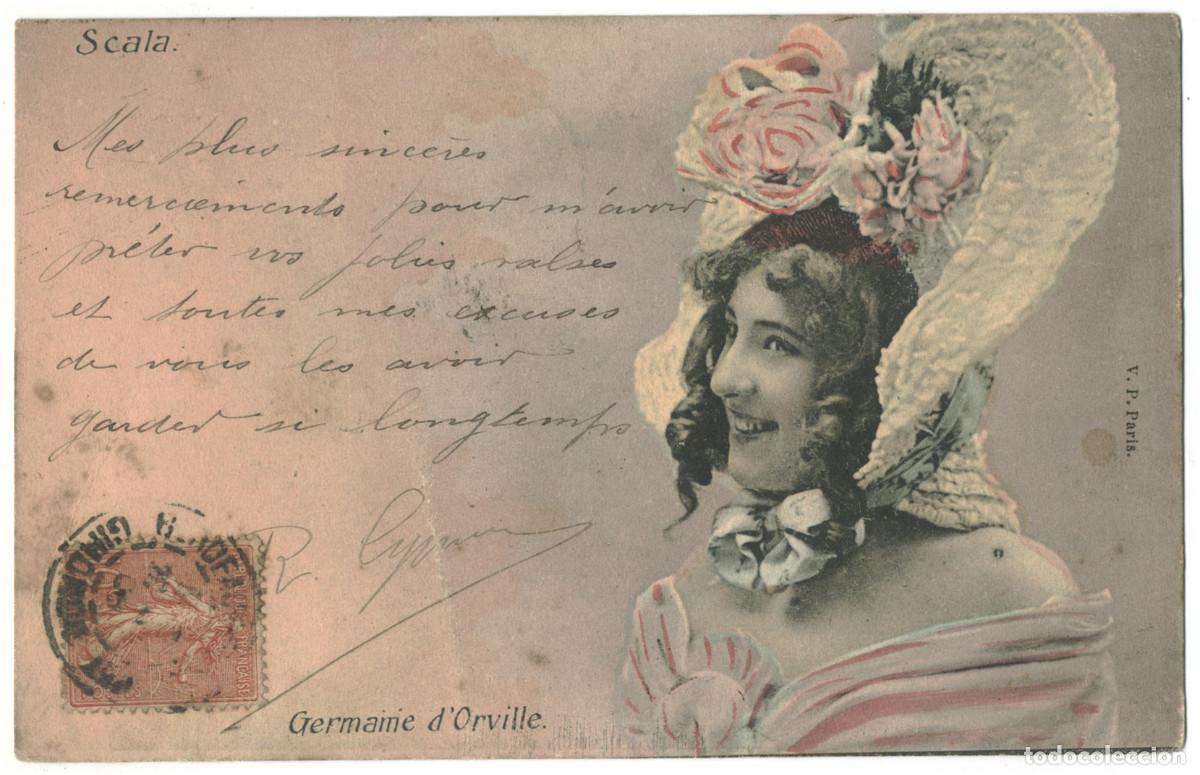 Scala.
Mes plus sincères
remerciements pour m'avoir
préter vos jolies valses
et toutes mes excuses
de vous les avoir
garder si longtemps
R.
GIRONDE
FRANÇAISE
Germaine d'Orville.
V. P. Paris.
todocoleccion